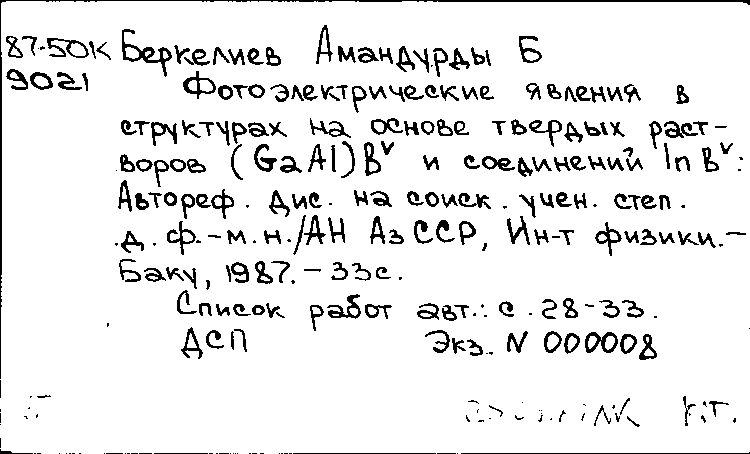 87-50К Беркелиев Амандурды Б
9021 Фотоэлектрические явления в
структурах на основе твердых раст-
воров (GaAl)Bⱽ и соединений InBⱽ:
Автореф. дис. на соиск. учен. степ.
д. ф.-м.н./АН АзССР, Ин-т физики.-
Баку, 1987.-33с.
Список работ авт.: с. 28-33.
ДСП Экз. N 000008